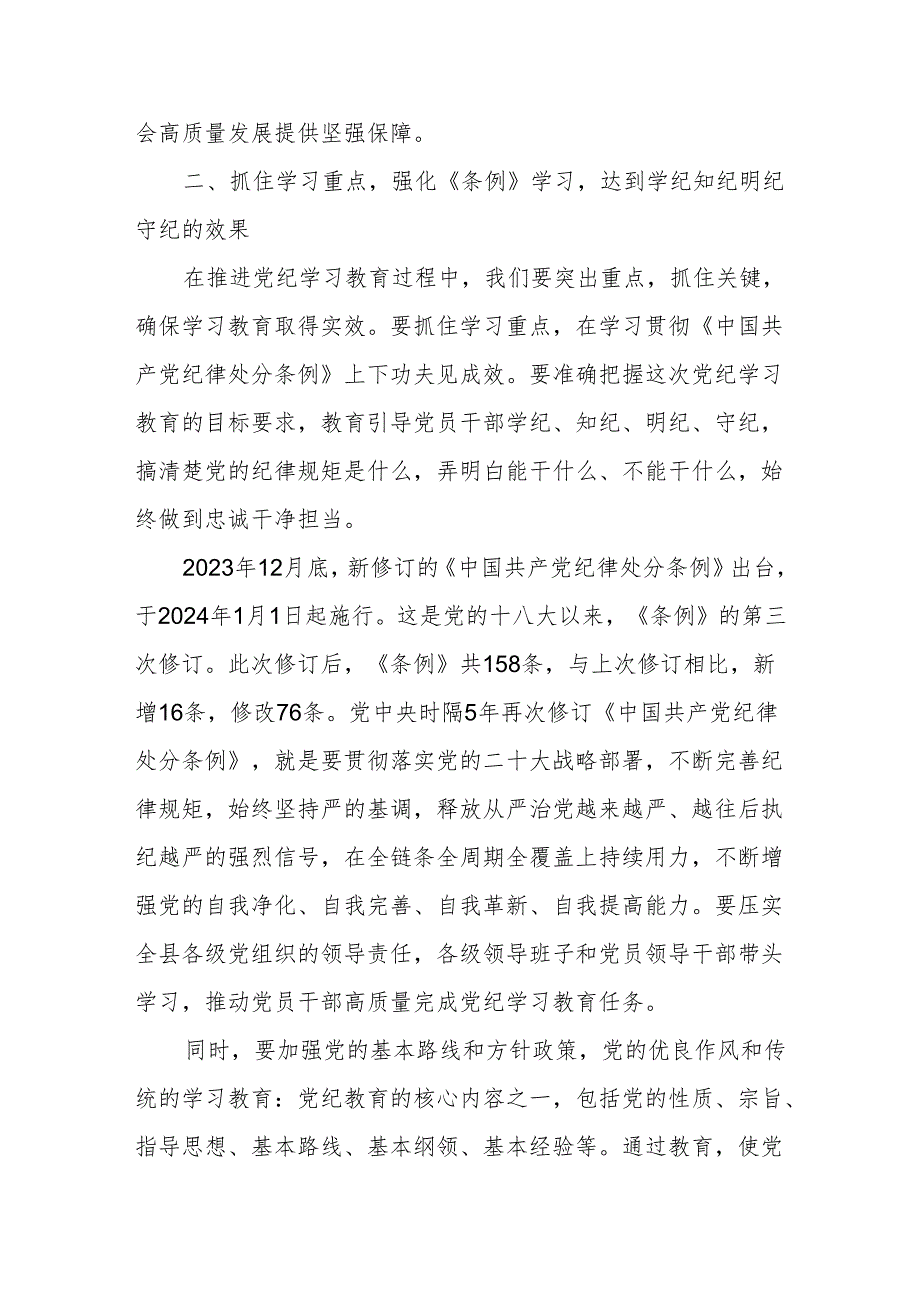 会高质量发展提供坚强保障。
二、抓住学习重点，强化《条例》学习，达到学纪知纪明纪
守纪的效果
在推进党纪学习教育过程中，我们要突出重点，抓住关键，
确保学习教育取得实效。要抓住学习重点，在学习贯彻《中国共
产党纪律处分条例》上下功夫见成效。要准确把握这次党纪学习
教育的目标要求，教育引导党员干部学纪、知纪、明纪、守纪，
搞清楚党的纪律规矩是什么，弄明白能干什么、不能干什么，始
终做到忠诚干净担当。
2023年12月底，新修订的《中国共产党纪律处分条例》出台，
于2024年1月1日起施行。这是党的十八大以来，《条例》的第三
次修订。此次修订后，《条例》共158条，与上次修订相比，新
增16条，修改76条。党中央时隔5年再次修订《中国共产党纪律
处分条例》，就是要贯彻落实党的二十大战略部署，不断完善纪
律规矩，始终坚持严的基调，释放从严治党越来越严、越往后执
纪越严的强烈信号，在全链条全周期全覆盖上持续用力，不断增
强党的自我净化、自我完善、自我革新、自我提高能力。要压实
全县各级党组织的领导责任，各级领导班子和党员领导干部带头
学习，推动党员干部高质量完成党纪学习教育任务。
同时，要加强党的基本路线和方针政策，党的优良作风和传
统的学习教育：党纪教育的核心内容之一，包括党的性质、宗旨、
指导思想、基本路线、基本纲领、基本经验等。通过教育，使党